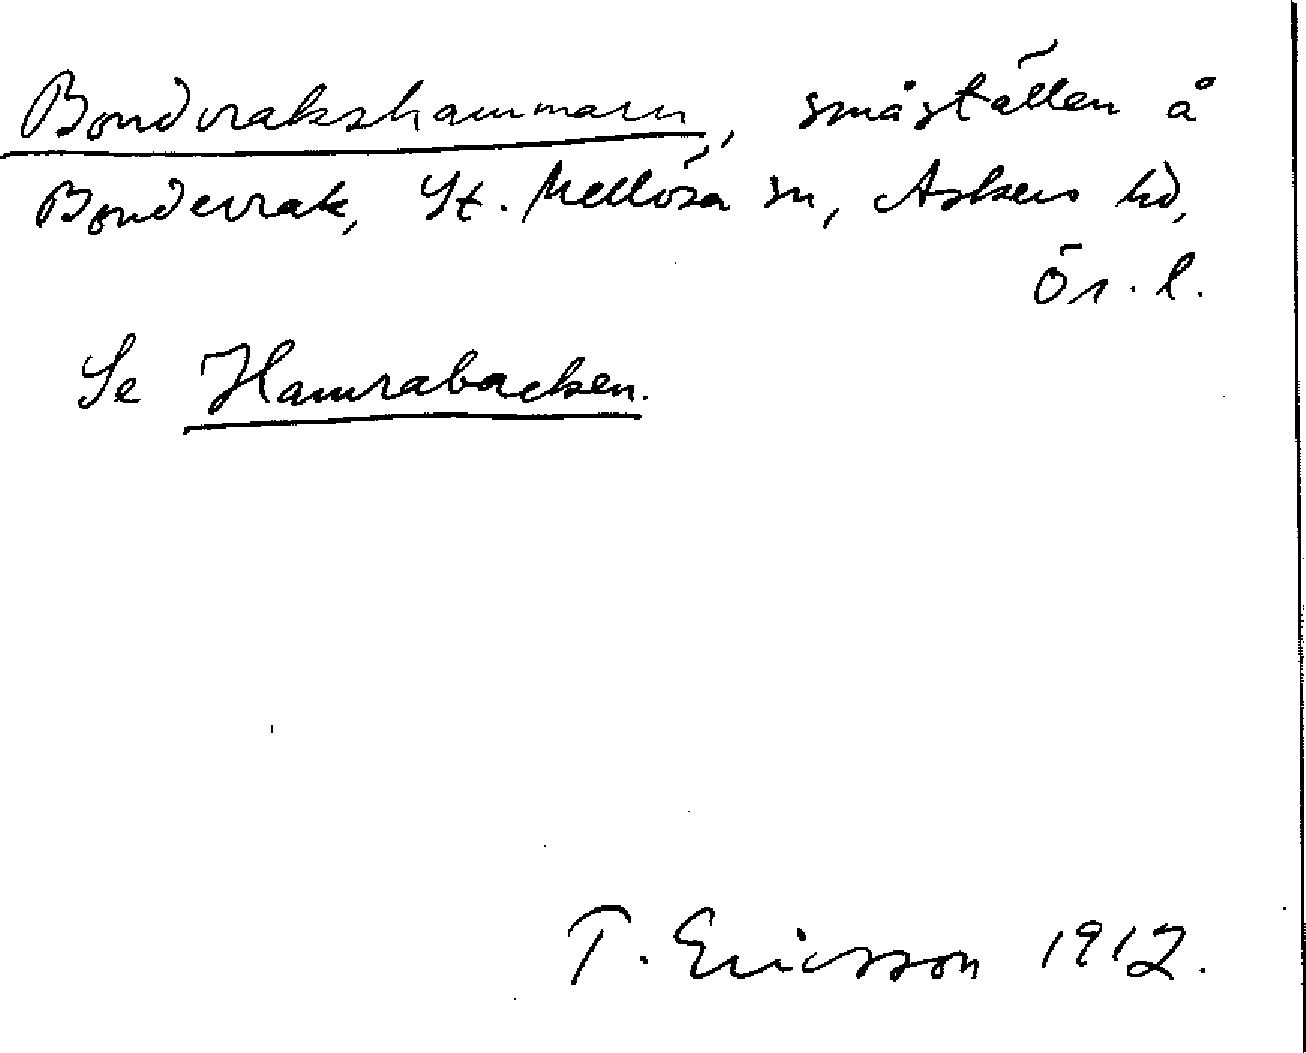 Bondvrakshammarn, småställen å
Bondevrak, St. Mellösa sn, Askers hd,
Ör. l.
Se Hamrabacken.
T. Ericsson 1912.